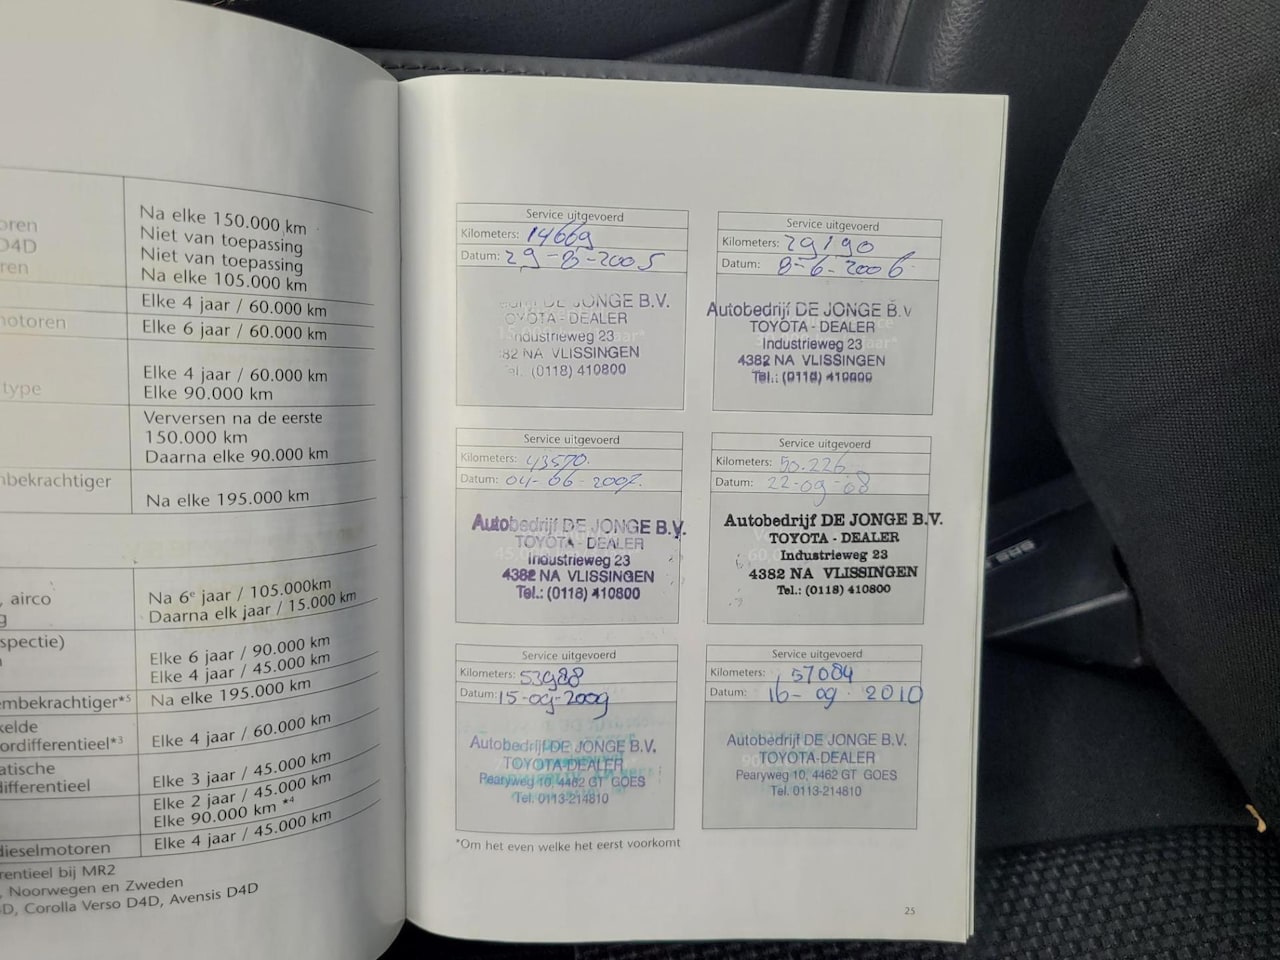 oren
D4D
ren
Na elke 150.000 km
Niet van toepassing
Niet van toepassing
Na elke 105.000 km
Elke 4 jaar / 60.000 km
notoren
Elke 6 jaar / 60.000 km
type
Elke 4 jaar / 60.000 km
Elke 90.000 km
Verversen na de eerste
150.000 km
Daarna elke 90.000 km
mbekrachtiger
Na elke 195.000 km
, airco
g
Na 6e jaar / 105.000km
Daarna elk jaar / 15.000 km
spectie)
Elke 6 jaar / 90.000 km
Elke 4 jaar / 45.000 km
embekrachtiger*5
Na elke 195.000 km
kelde
ordifferentieel*3
Elke 4 jaar / 60.000 km
atische
differentieel
Elke 3 jaar / 45.000 km
Elke 2 jaar / 45.000 km
Elke 90.000 km *4
dieselmotoren
Elke 4 jaar / 45.000 km
rentieel bij MR2
, Noorwegen en Zweden
D, Corolla Verso D4D, Avensis D4D
Service uitgevoerd
Kilometers: 14669
Datum: 29-8-2005
DE JONGE B.V.
OYOTA - DEALER
Industrieweg 23
382 NA VLISSINGEN
el. (0118) 410800
Service uitgevoerd
Kilometers: 29190
Datum: 8-6-2006
Autobedrijf DE JONGE B.V
TOYOTA - DEALER
Industrieweg 23
4382 NA VLISSINGEN
Tel.: (0118) 410800
Service uitgevoerd
Kilometers: 43570.
Datum: 04-06-2007.
Autobedrijf DE JONGE B.V.
TOYOTA - DEALER
Industrieweg 23
4382 NA VLISSINGEN
Tel.: (0118) 410800
Service uitgevoerd
Kilometers: 50.226
Datum: 22-09-08
Autobedrijf DE JONGE B.V.
TOYOTA - DEALER
Industrieweg 23
4382 NA VLISSINGEN
Tel.: (0118) 410800
Service uitgevoerd
Kilometers: 53988
Datum: 15-09-2009
Autobedrijf DE JONGE B.V.
TOYOTA-DEALER
Pearyweg 10, 4462 GT GOES
Tel. 0113-214810
Service uitgevoerd
Kilometers: 57084
Datum: 16-09-2010
Autobedrijf DE JONGE B.V.
TOYOTA-DEALER
Pearyweg 10, 4462 GT GOES
Tel. 0113-214810
*Om het even welke het eerst voorkomt
25